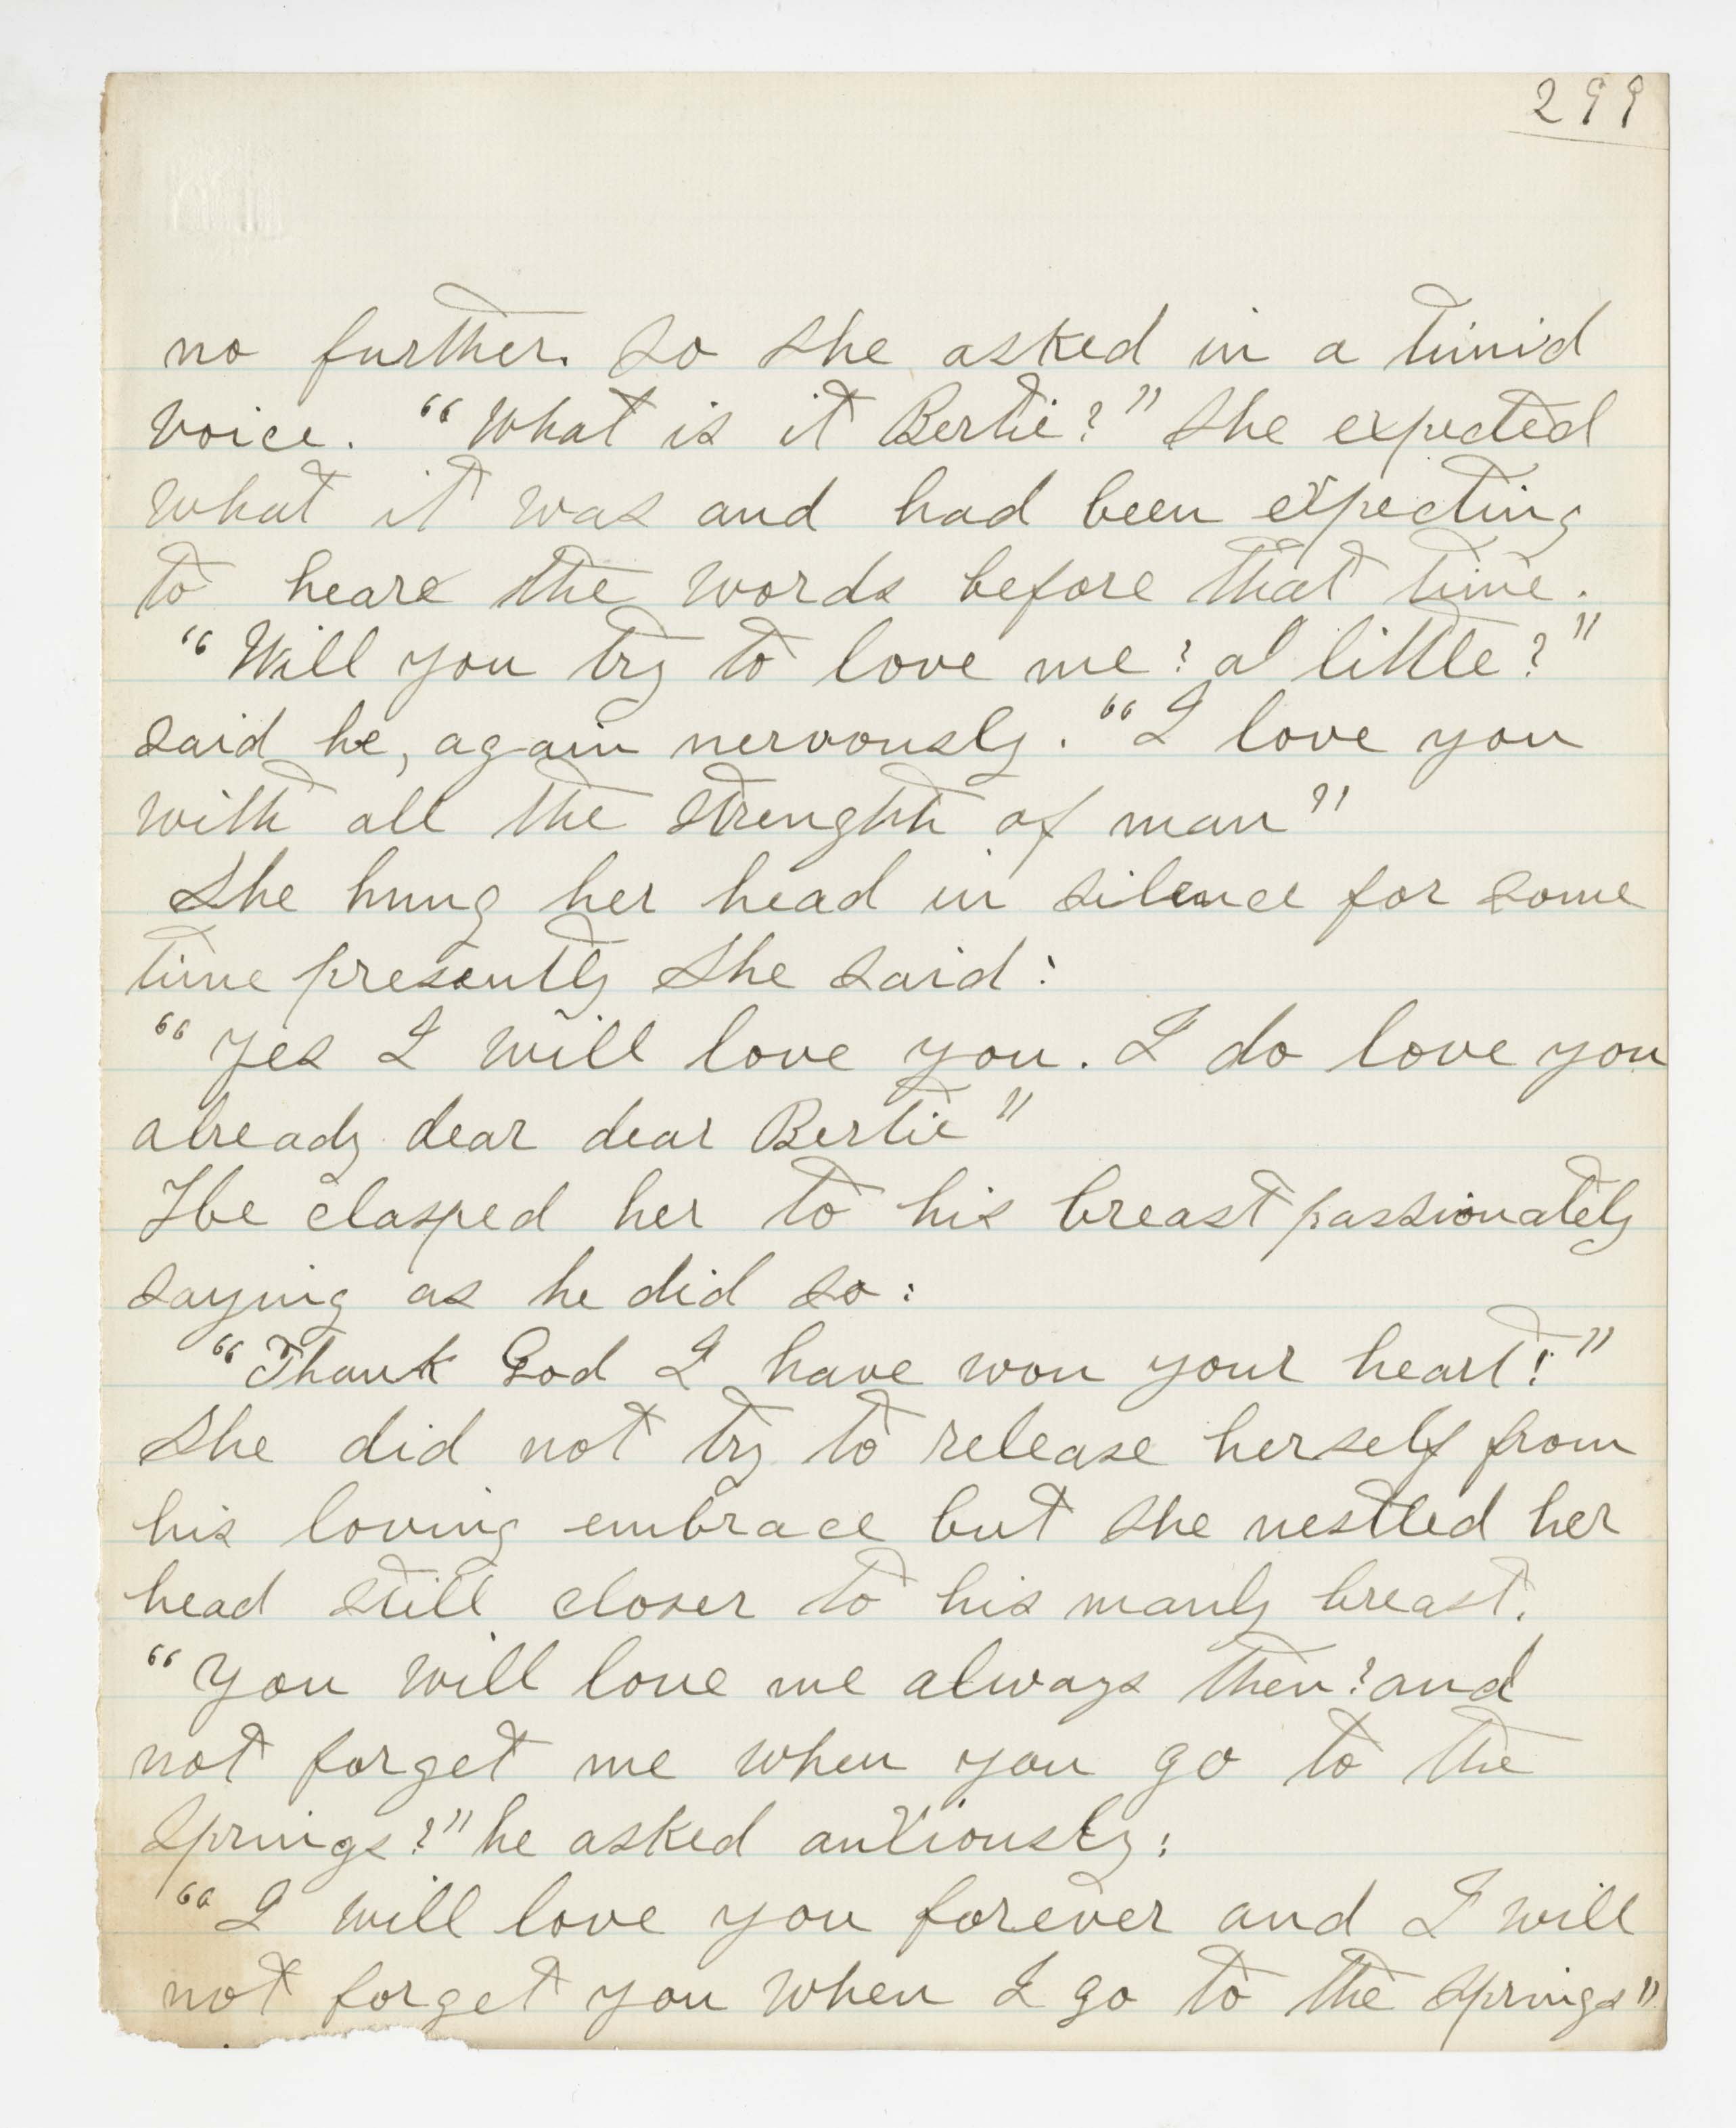 299
no further. So she asked in a timid
voice. "What is it Bertie?" She expected
what it was and had been expecting
to heare the words before that time.
"Will you try to love me? a little?"
said he, again nervously. "I love you
with all the strenghth of man"
She hung her head in silence for some
time presently she said:
"Yes I will love you. I do love you
already dear dear Bertie"
He clasped her to his breast passionately
saying as he did so:
"Thank God I have won your heart!"
She did not try to release herself from
his loving embrace but she nestled her
head still closer to his manly breast.
"You will love me always then? and
not forget me when you go to the
Springs?" he asked anxiously:
"I will love you forever and I will
not forget you when I go to the Springs"